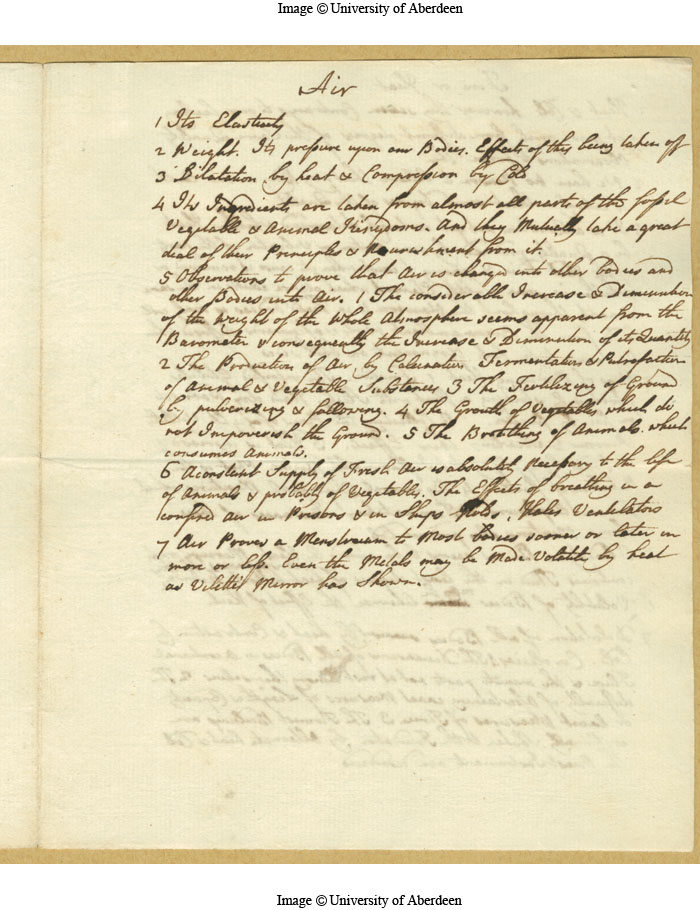 Image © University of Aberdeen
Air
1 Its Elasticity
2 Weight. Its pressure upon our Bodies. Effects of this being taken off
3 Dilatation by heat & Compression by Cold
4 Its Ingredients are taken from almost all parts of the fossil
Vegetable & Animal Kingdoms. And they Mutually take a great
deal of their Principles & Nourishment from it.
5 Observations to prove that Air is changed into other bodies and
other Bodies into Air. 1 The considerable Increase & Diminution
of the weight of the Whole Atmosphere seems apparent from the
Barometer & consequently the Increase & Diminution of its Quantity
2 The Production of Air by Calcination Fermentation & Putrefaction
of Animal & Vegetable Substances 3 The Fertilizing of Ground
by pulverizing & fallowing. 4 The Growth of Vegetables which do
not Impoverish the Ground. 5 The Breathing of Animals. which
consumes Animals.
6 A constant Supply of Fresh Air is absolutely Necessary to the life
of Animals & probably of Vegetables. The Effects of breathing in a
confined Air in Prisons & in Ships Holds. Hales Ventilators
7 Air Proves a Menstruum to Most bodies sooner or later in
more or less. Even the Metals may be Made Volatile by heat
as Viletti Mirror has Shown.
Image © University of Aberdeen